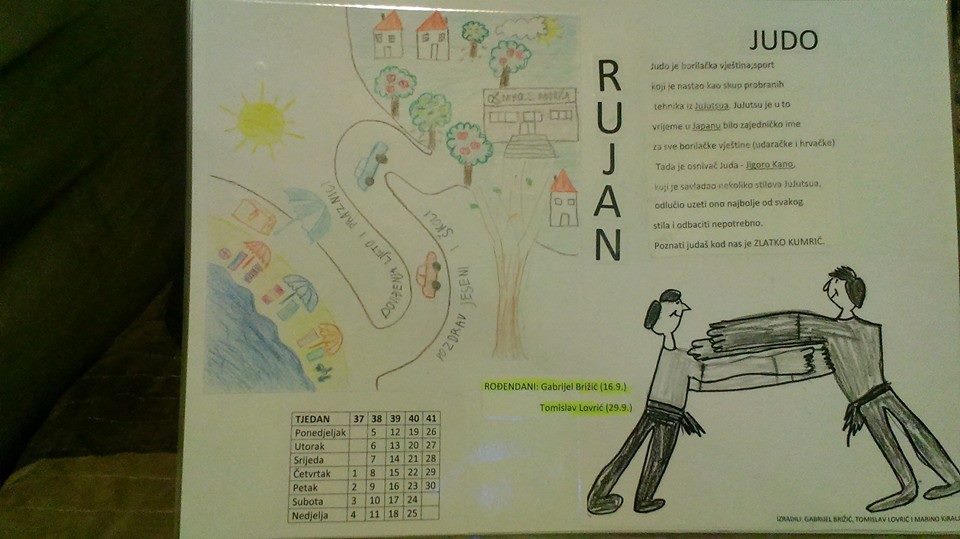 OŠ NIKOLE ANDRIĆA
DOVIĐENJA LJETO I PRAZNICI
POZDRAV JESENI I ŠKOLI
RUJAN
JUDO
Judo je borilačka vještina,sport
koji je nastao kao skup probranih
tehnika iz Jujutsua. JuJutsu je u to
vrijeme u Japanu bilo zajedničko ime
za sve borilačke vještine (udaračke i hrvačke)
Tada je osnivač Juda - Jigoro Kano,
koji je savladao nekoliko stilova JuJutsua,
odlučio uzeti ono najbolje od svakog
stila i odbaciti nepotrebno.
Poznati judaš kod nas je ZLATKO KUMRIĆ.
ROĐENDANI: Gabrijel Brižić (16.9.)
Tomislav Lovrić (29.9.)
TJEDAN 37 38 39 40 41
Ponedjeljak 5 12 19 26
Utorak 6 13 20 27
Srijeda 7 14 21 28
Četvrtak 1 8 15 22 29
Petak 2 9 16 23 30
Subota 3 10 17 24
Nedjelja 4 11 18 25
IZRADILI: GABRIJEL BRIŽIĆ, TOMISLAV LOVRIĆ I MARINO